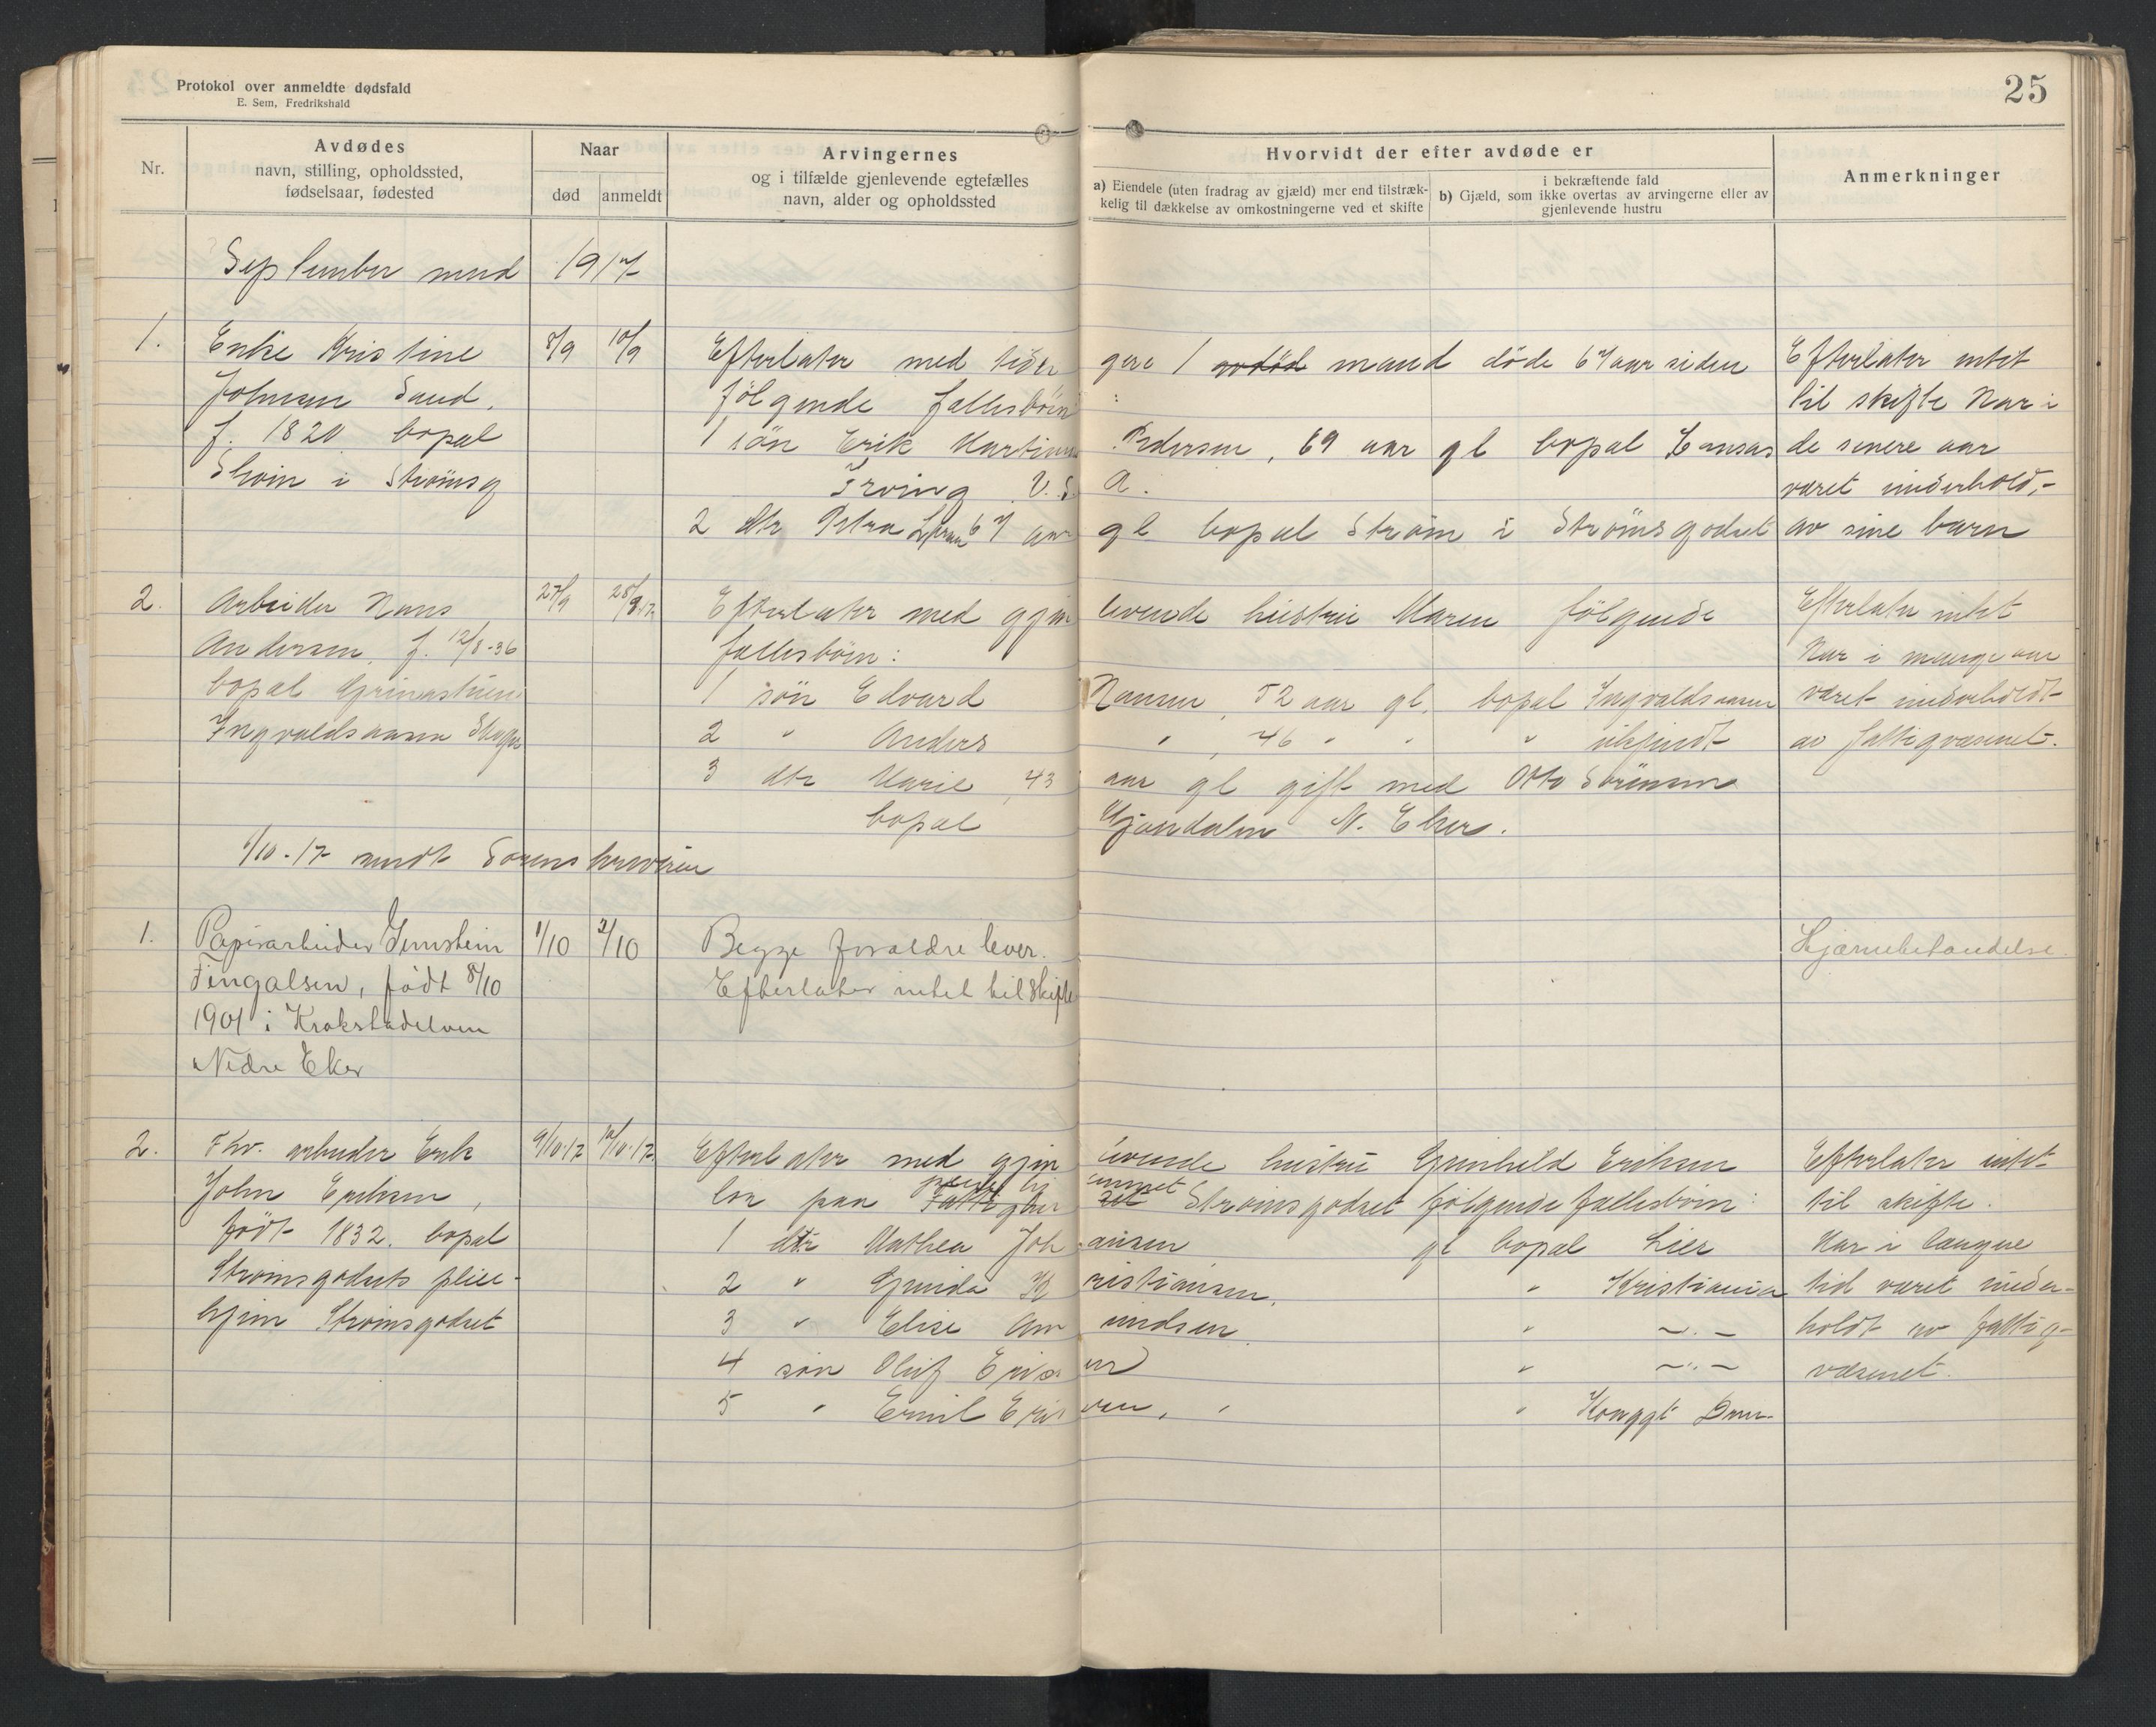 Protokol over anmeldte dødsfald
E. Sem, Fredrikshald
25
Nr.
Avdødes
navn, stilling, opholdssted,
fødselsaar, fødested
Naar
død
anmeldt
Arvingernes
og i tilfælde gjenlevende egtefælles
navn, alder og opholdssted
Hvorvidt der efter avdøde er
a) Eiendele (uten fradrag av gjæld) mer end tilstræk-
kelig til dækkelse av omkostningerne ved et skifte
i bekræftende fald
b) Gjæld, som ikke overtas av arvingerne eller av
gjenlevende hustru
Anmerkninger
September mnd 1917
1.
Enke Kristine
Johnsen Sand.
f. 1820 bopæl
Strøm i Strömsg
8/9
10/9
Efterlater med tidligere 1 avdöd mand döde 67 aar siden
følgende fællesbörn:
1 sön Erik Martinus Pedersen, 69 aar gl bopæl Kansas
Irving U. S. A.
2 dtr Petra 67 aar gl bopæl Ström i Strömsgodset
Efterlater intet
til skifte Har i
de senere aar
været underhold,-
av sine barn
2.
Arbeider Hans
Andersen, f. 12/8-36
bopæl
Ingvaldsaasen
27/9
28/9.17
Efterlater med gjenlevende hustru Maren følgende
fællesbörn:
1 sön Edvard Hansen, 52 aar gl. bopæl Ingvaldsaasen
2 " Anders " , 46 " " " ukjendt
3 dtr Marie, 43 aar gl gift med Otto Sörensen
bopæl Mjöndalen N. Eker.
Efterlater intet
Har i mange aar
været underholdt
av fattigvæsenet.
1/10-17 sendt Sorenskriveren
1.
Papirarbeider Jernstein
Fingalsen, født 8/10
1901 i Krokstadelven
Nedre Eker
1/10
2/10
Begge forældre lever.
Efterlater intet til skifte
Hjærnebetændelse.
2.
Fhv. arbeider Erik
John Eriksen,
født 1832. bopæl
Strømsgodsets pleie-
hjem Strømsgodset
9/10.17
10/10.17.
Efterlater med gjenlevende hustru Gunhild Eriksen
bor paa pleiehjemmet Strømsgodset følgende fællesbörn:
1 dtr Mathea Johansen gl bopæl Lier
2 " Gunda Kristiansen, " Kristiania
3 " Elise Amundsen " ~.~
4 sön Oluf Eriksen " ~"~
5 " Emil Eriksen, " " Konggt Dmn.
Efterlater intet
til skifte.
Har i længere
tid været under-
holdt av fattig-
væsenet.